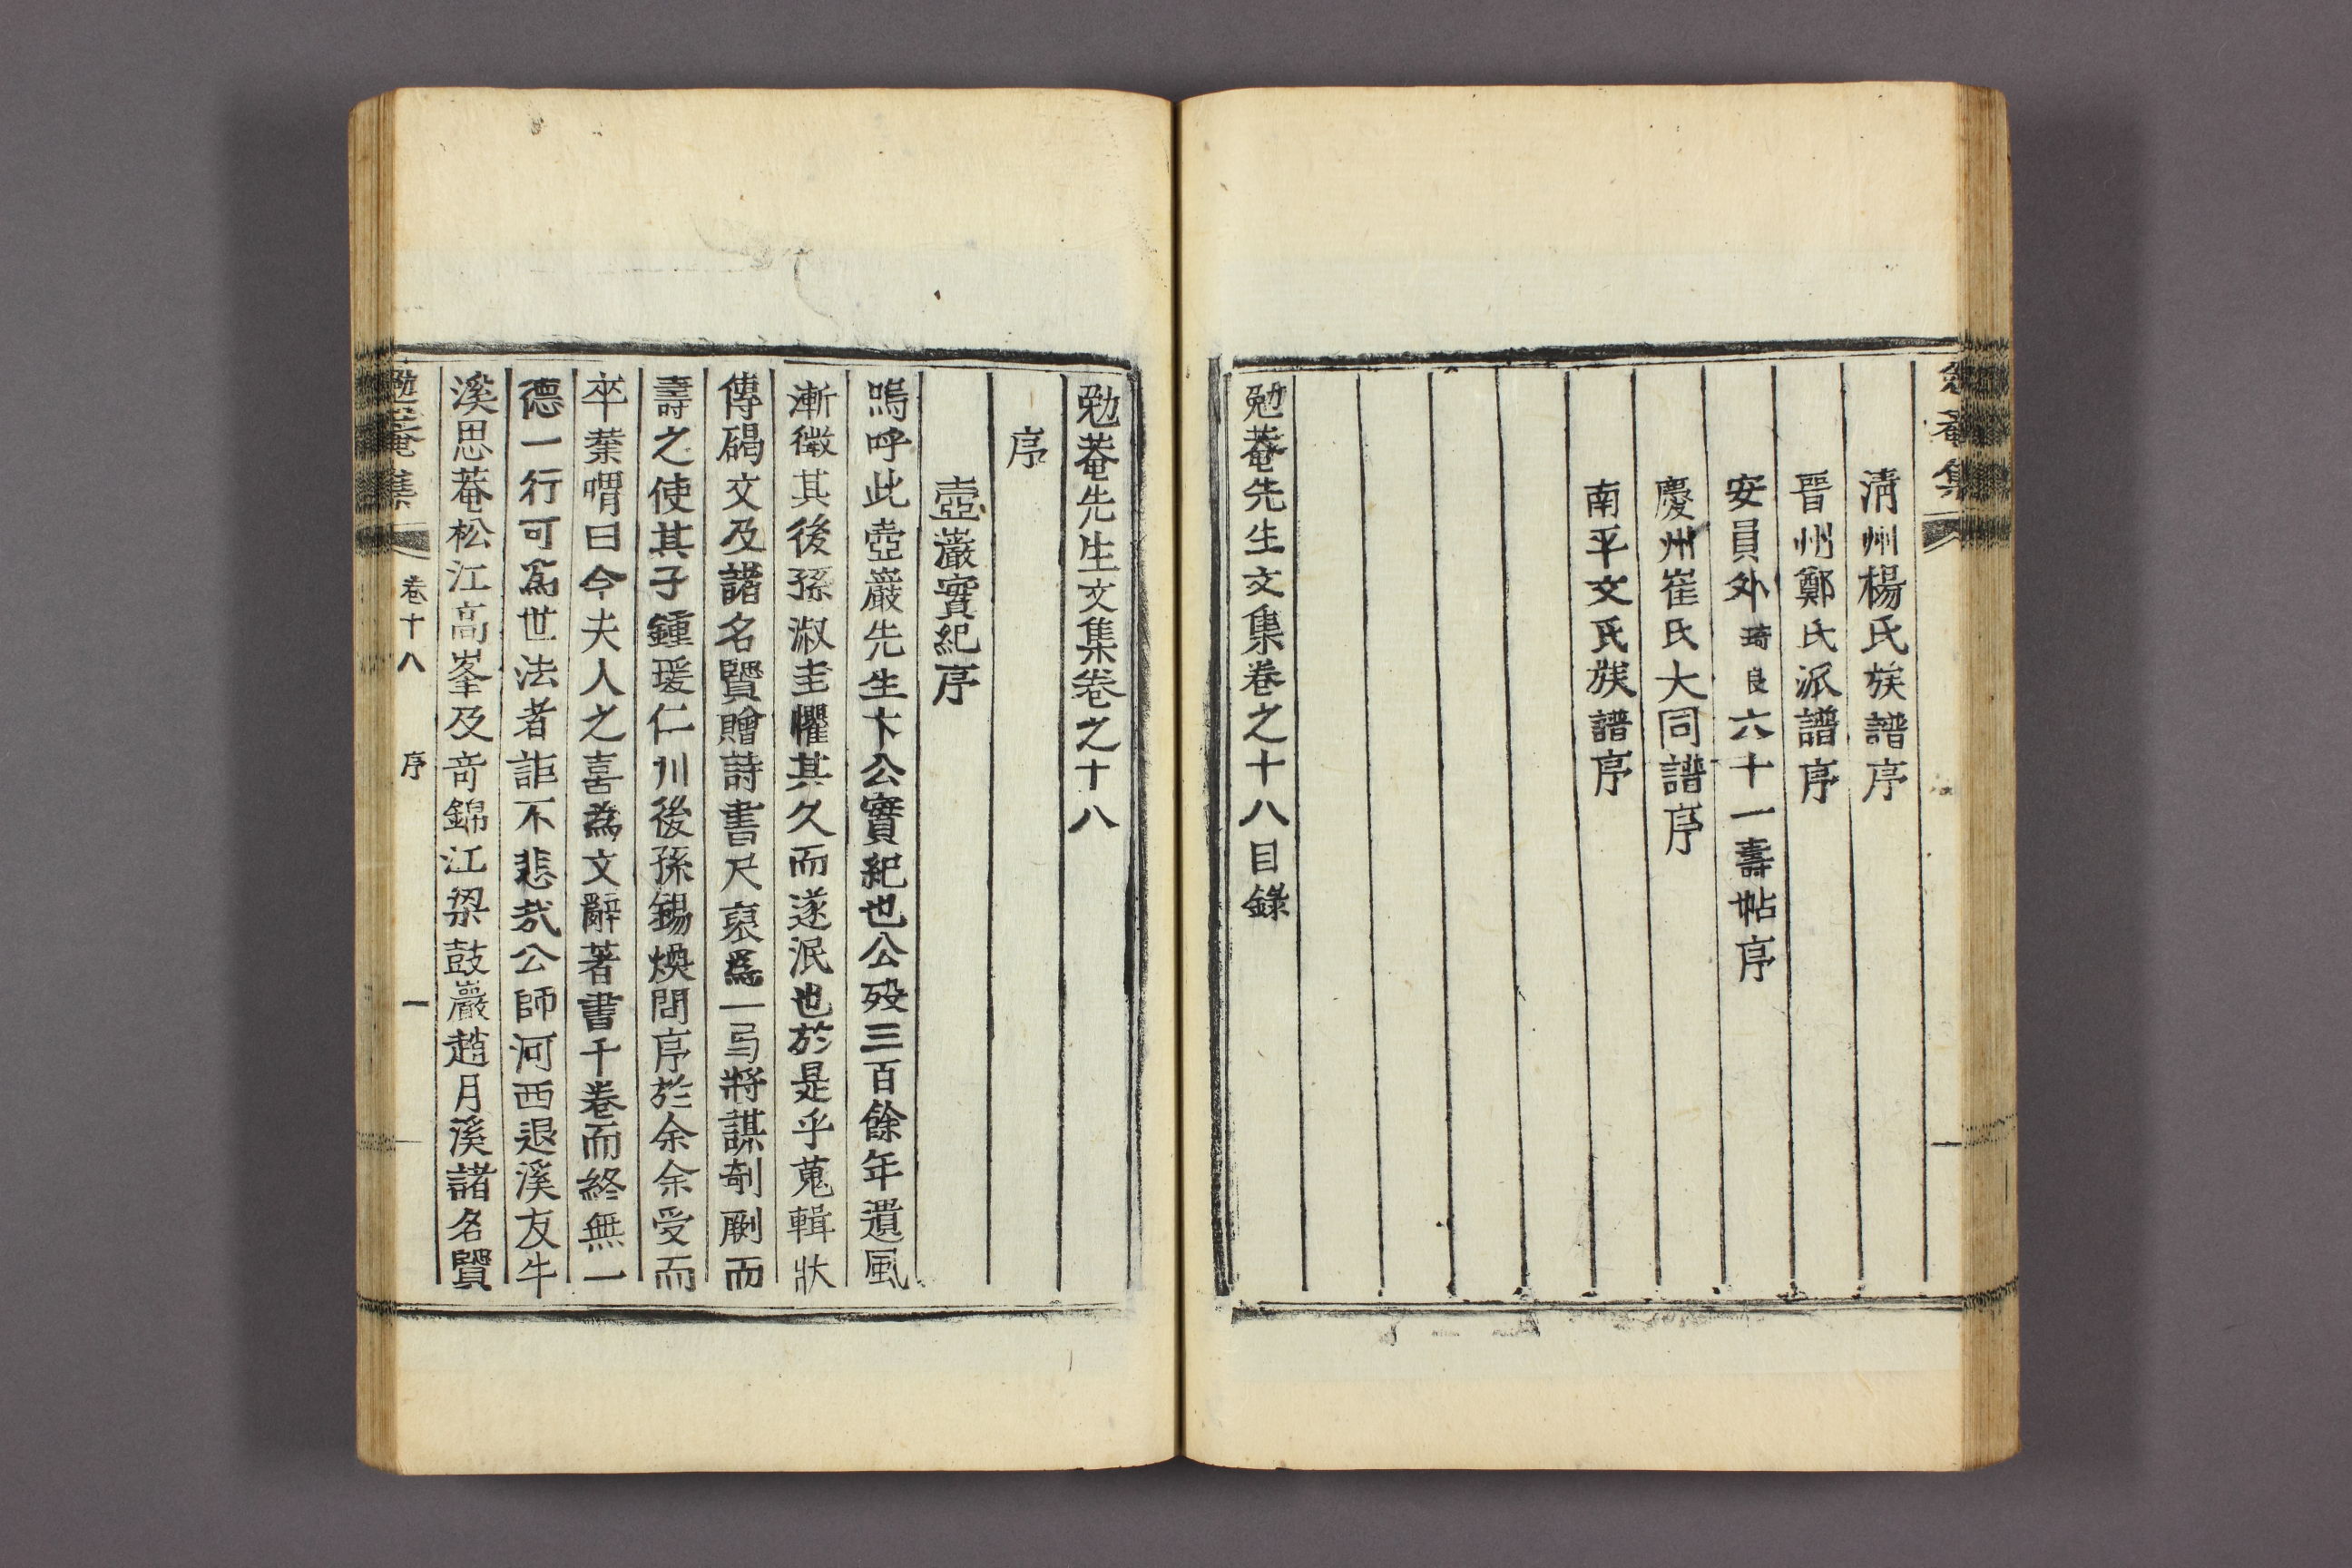 勉菴集
一
淸州楊氏族譜序
晉州鄭氏派譜序
安員外琦良六十一壽帖序
慶州崔氏大同譜序
南平文氏族譜序
勉菴先生文集卷之十八目錄
勉菴先生文集卷之十八
序
壺巖實紀序
嗚呼此壺巖先生卞公實紀也公歿三百餘年遺風
漸微其後孫淑圭懼其久而遂泯也於是乎蒐輯狀
傳碣文及諸名賢贈詩書尺裒爲一弓將謀剞劂而
壽之使其子鍾瑗仁川後孫錫煥問序於余余受而
卒業喟曰今夫人之喜爲文辭著書千卷而終無一
德一行可爲世法者詎不悲哉公師河西退溪友牛
溪思菴松江高峯及奇錦江梁鼓巖趙月溪諸名賢
勉菴集 卷十八 序 一